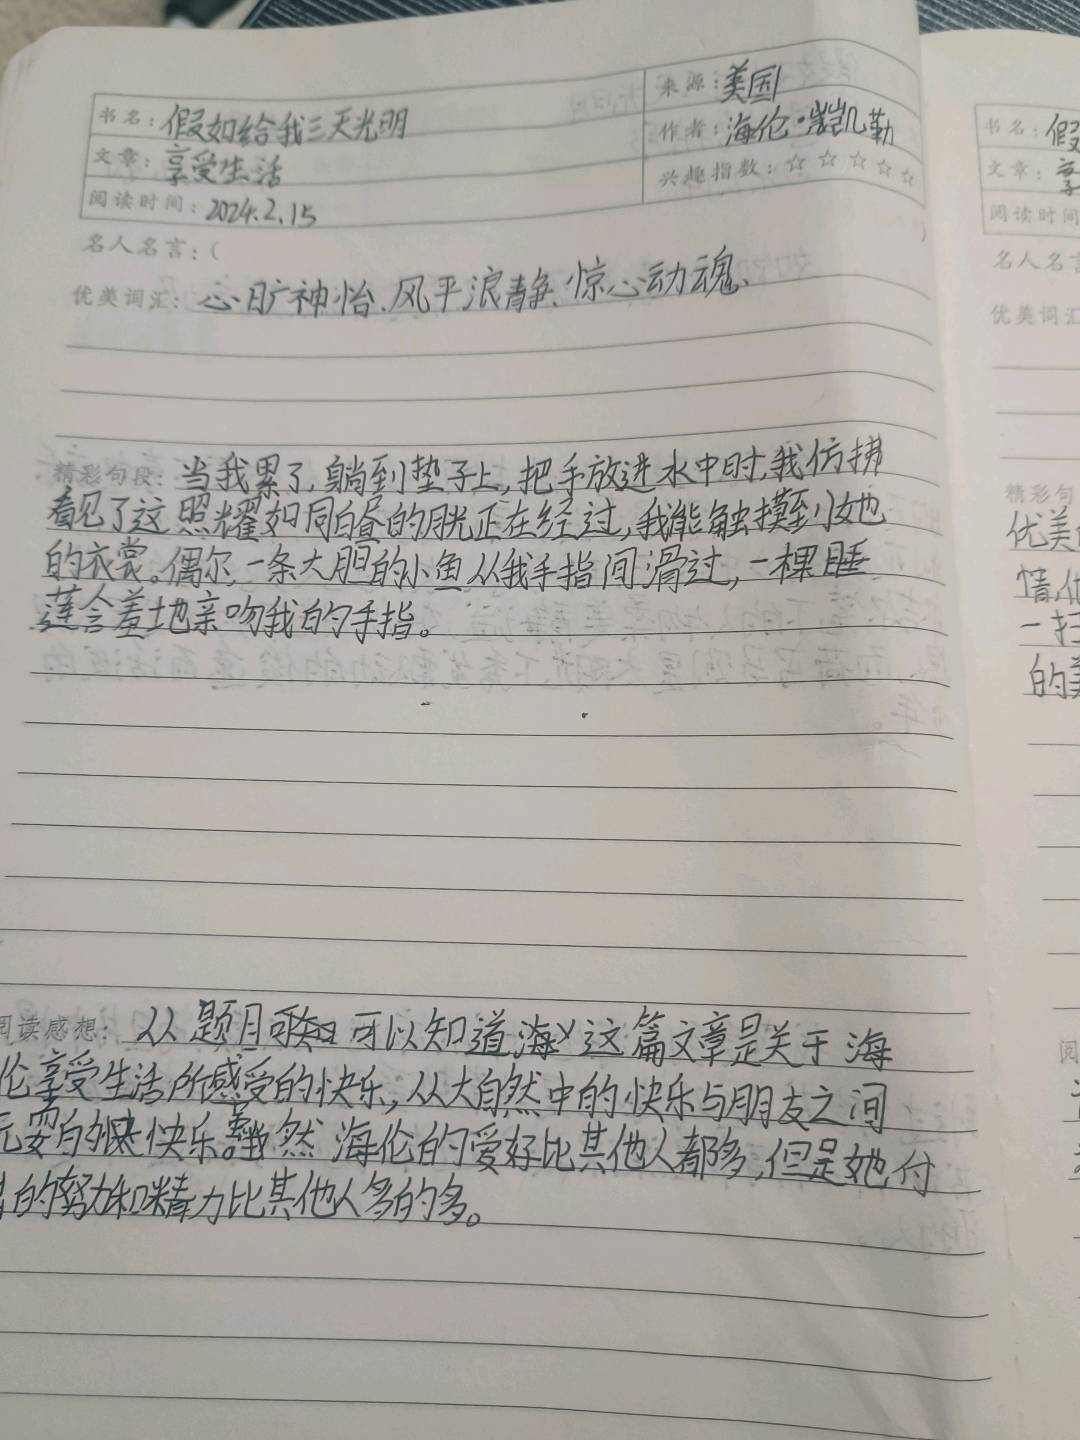 书名：假如给我三天光明
来源：美国
文章：享受生活
作者：海伦·凯勒
阅读时间：2024.2.15
兴趣指数：☆☆☆☆☆
名人名言：(
优美词汇：心旷神怡、风平浪静、惊心动魂、
精彩句段：当我累了，躺到垫子上，把手放进水中时，我仿拂
看见了这照耀如同白昼的月光正在经过，我能触摸到她
的衣裳。偶尔，一条大胆的小鱼从我手指间滑过，一棵睡
莲含羞地亲吻我的手指。
阅读感想：从题目可以知道这篇文章是关于海
伦享受生活所感受的快乐，从大自然中的快乐与朋友之间
玩耍的快乐。虽然海伦的爱好比其他人都多，但是她付
出的努力和精力比其他人多的多。
书名：假
文章：享
阅读时间
名人名言
优美词汇
精彩句
优美
情
一扫
的美
阅